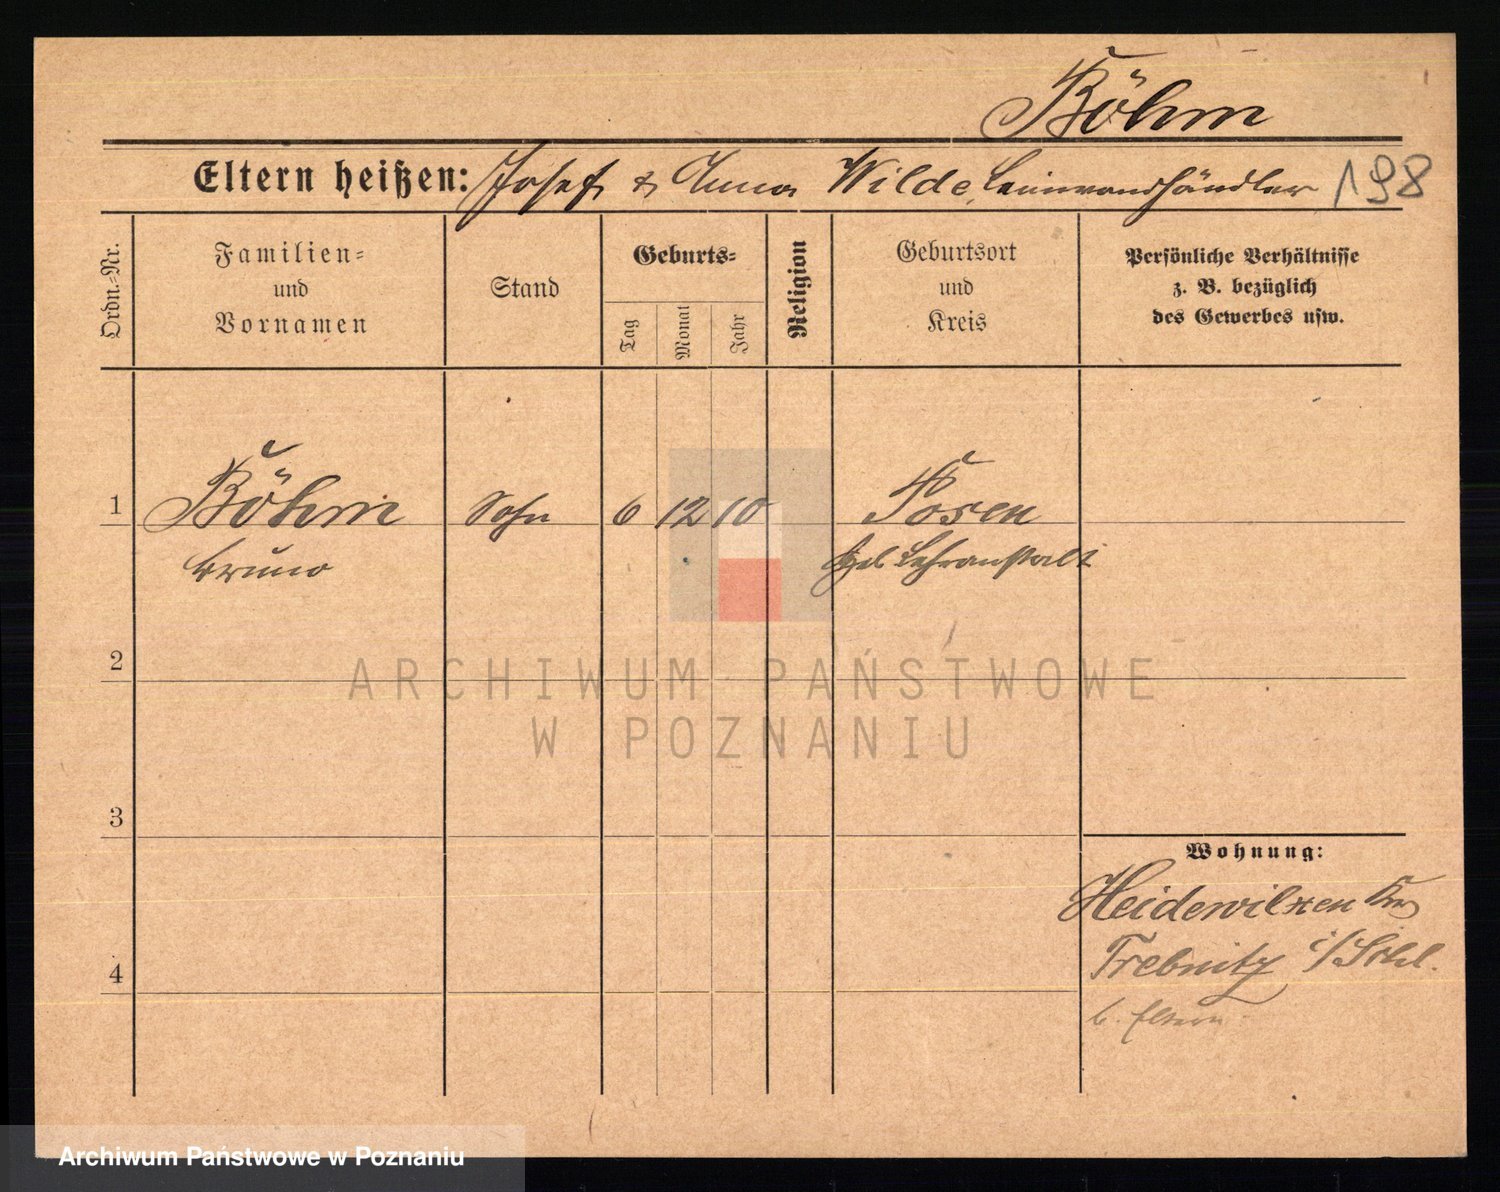 Böhm
Eltern heißen: Josef & Anna Wilde, Leinwandhändler 198
Ordn.-Nr.
Familien-
und
Vornamen
Stand
Geburts-
Tag
Monat
Jahr
Religion
Geburtsort
und
Kreis
Persönliche Verhältnisse
z. B. bezüglich
des Gewerbes usw.
1 Böhm Sohn 6 12 10 Posen
Bruno Lehranstalt
2
ARCHIWUM PAŃSTWOWE
W POZNANIU
3
Wohnung:
Heidewilxen Krs
4 Trebnitz i/Schl.
b. Eltern
Archiwum Państwowe w Poznaniu